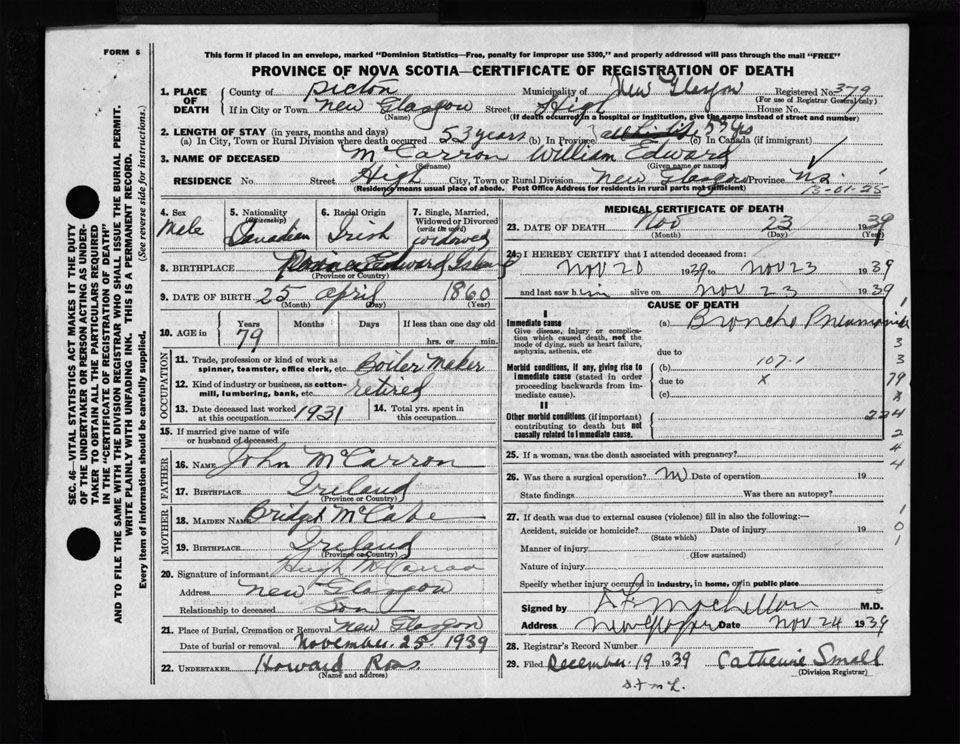 FORM 6
This form if placed in an envelope, marked "Dominion Statistics—Free, penalty for improper use $300," and properly addressed will pass through the mail "FREE"
PROVINCE OF NOVA SCOTIA—CERTIFICATE OF REGISTRATION OF DEATH
SEC. 46—VITAL STATISTICS ACT MAKES IT THE DUTY
OF THE UNDERTAKER OR PERSON ACTING AS UNDER-
TAKER TO OBTAIN ALL THE PARTICULARS REQUIRED
IN THE "CERTIFICATE OF REGISTRATION OF DEATH"
AND TO FILE THE SAME WITH THE DIVISION REGISTRAR WHO SHALL ISSUE THE BURIAL PERMIT.
WRITE PLAINLY WITH UNFADING INK. THIS IS A PERMANENT RECORD.
Every item of information should be carefully supplied. (See reverse side for instructions.)
1. PLACE OF DEATH County of Pictou Municipality of New Glasgow Registered No. 379
(For use of Registrar General only)
If in City or Town New Glasgow Street High House No.
(Name) (If death occurred in a hospital or institution, give the name instead of street and number)
2. LENGTH OF STAY (in years, months and days)
(a) In City, Town or Rural Division where death occurred 53 years (b) In Province 53 yrs (c) In Canada (if immigrant)
3. NAME OF DECEASED McCarron William Edward
(Surname) (Given name or names)
RESIDENCE No Street High City, Town or Rural Division New Glasgow Province N.S.
(Residency means usual place of abode. Post Office Address for residents in rural parts not sufficient)
13-01-25
4. Sex Male
5. Nationality (Citizenship) Canadian
6. Racial Origin Irish
7. Single, Married, Widowed or Divorced (write the word) widowed
8. BIRTHPLACE Prince Edward Island
(Province or Country)
9. DATE OF BIRTH 25 April 1860
(Month) (Day) (Year)
10. AGE in Years 79 Months Days If less than one day
hrs. or min.
OCCUPATION
11. Trade, profession or kind of work as
spinner, teamster, office clerk, etc. Boiler Maker
12. Kind of industry or business, as cotton-
mill, lumbering, bank, etc. retired
13. Date deceased last worked
at this occupation 1931
14. Total yrs. spent in
this occupation
15. If married give name of wife
or husband of deceased
FATHER
16. NAME John McCarron
17. BIRTHPLACE Ireland
(Province or Country)
MOTHER
18. MAIDEN NAME Bridget McCabe
19. BIRTHPLACE Ireland
(Province or Country)
20. Signature of informant Hugh McCarron
Address New Glasgow
Relationship to deceased Son
21. Place of Burial, Cremation or Removal New Glasgow
Date of burial or removal November 25 1939
22. UNDERTAKER Howard Ross
(Name and address)
MEDICAL CERTIFICATE OF DEATH
23. DATE OF DEATH Nov 23 1939
(Month) (Day) (Year)
24. I HEREBY CERTIFY that I attended deceased from:
Nov 20 1939 to Nov 23 1939
and last saw him alive on Nov 23 1939
CAUSE OF DEATH
I
Immediate cause (a) Broncho Pneumonia
Give disease, injury or complica-
tion which caused death, not the
mode of dying, such as heart failure,
asphyxia, asthenia, etc due to
Morbid conditions, if any, giving rise to
immediate cause (stated in order
proceeding backwards from im-
mediate cause).
(b) 107-1
due to x
(c)
II
Other morbid conditions (if important)
contributing to death but not
causally related to immediate cause.
1
3
3
79
x
224
2
4
4
25. If a woman, was the death associated with pregnancy?
26. Was there a surgical operation? Date of operation 19
State findings Was there an autopsy?
27. If death was due to external causes (violence) fill in also the following:—
Accident, suicide or homicide? Date of injury 19
(State which)
Manner of injury
(How sustained)
Nature of injury
Specify whether injury occurred in industry, in home, or in public place
1
0
1
Signed by M.D.
Address New Glasgow Date Nov 24 1939
28. Registrar's Record Number
29. Filed December 19 1939 Catherine Small
(Division Registrar)